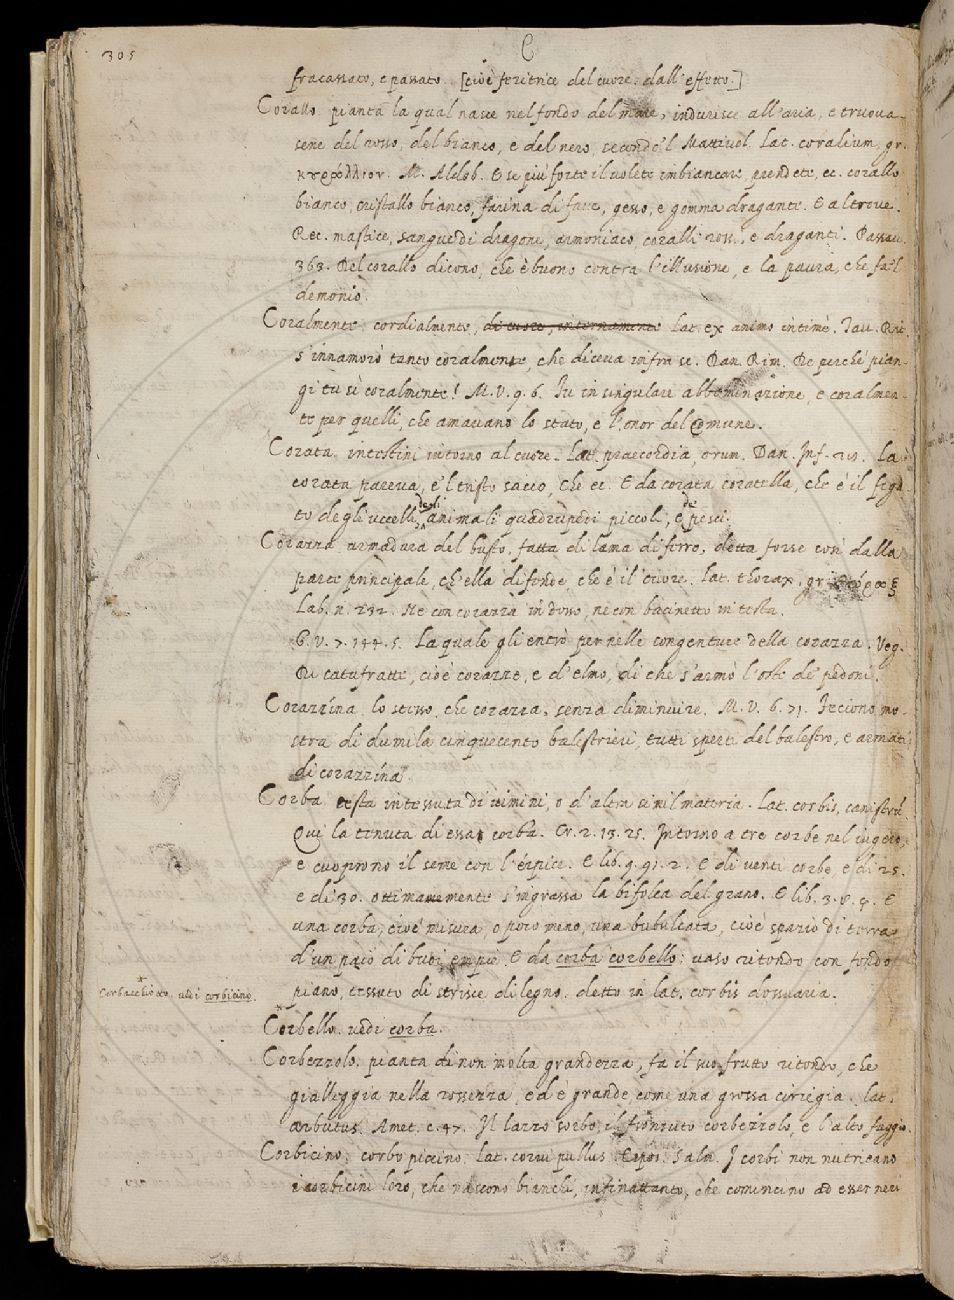 305
C
fracassato, e passato. [cioè feritrice del cuore. dall'effetto.]
Corallo. pianta la qual nasce nel fondo del mare, indurisce all'aria, e truova-
sene del rosso, del bianco, e del nero, secondo 'l Mattiuol. Lat. coralium, gr.
κοράλλιον. M. Aldob. E se più forte il volete imbiancare, prendete, ec. corallo
bianco, cristallo bianco, farina di fave, gesso, e gomma draganti. E altrove.
Rec. mastice, sangue di dragone, armoniaco, coralli rossi, e draganti. Passav.
363. Del corallo dicono, che è buono contra l'illusione, e la paura, che fa 'l
demonio.
Coralmente. cordialmente, di cuore, internamente Lat. ex animo intimè. Tav. Rit.
s'innamorò tanto coralmente, che diceva infra se. Dan. Rim. De perchè pian-
gi tu sì coralmente! M. V. 9. 6. Fu in singulare abbominazione, e coralmen-
te per quelli, che amavano lo stato, e l'onor del Comune.
Corata. intestini intorno al cuore. Lat. praecordia, orum. Dan. Inf. 28. La
corata pareva, e 'l tristo sacco, che ec. E da corata coratella, che è il fega-
to degli uccelli, degli animali quadrupedi piccoli, e de' pesci.
Corazza. armadura del busto, fatta di lama di ferro, detta forse così dalla
parte principale, ch'ella difende, che è il cuore. Lat. thorax, gr. θώραξ
Lab. n. 232. Nè con corazza in dosso, nè con bacinetto in testa.
G. V. 7. 144. 5. La quale gli entrò per nelle congenture della corazza. Veg.
Di catafratte, cioè corazze, e d'elmo, di che s'armò l'oste de' pedoni.
Corazzína, lo stesso, che corazza, senza diminuire. M. V. 6. 71. Feciono mo-
stra di dumila cinquecento balestrieri, tutti sperti del balestro, e armati
di corazzína.
Corba cesta intessuta di vimini, o d'altra simil materia. Lat. corbis, canistrũ
Qui la tenuta di essa corba. Cr. 2. 13. 25. Intorno a tre corbe nel iugero,
e cuoprono il seme con l'érpice. E lib. 9. 91. 2. E di venti corbe, e di 25.
e di 30. ottimamente s'ingrassa la bifolca del grano. E lib. 3. 8. 4. E
una corba, cioè misura, o poco meno, una bubulcata, cioè spazio di terra
d'un paio di buoi empie. E da corba corbello: vaso ritondo con fondo
piano, tessuto di strisce di legno. detto in lat. corbis dossuaria.
Corbacchiotto. vedi corbicino.
Corbello. vedi corba.
Corbezzolo. pianta di non molta grandezza, fa il suo frutto ritondo, che
gialleggia nella rossezza, ed è grande, come una grossa ciriegia. lat.
arbutus. Amet. c. 47. Il lazzo sorbo, il fronzuto corbezzolo, e l'alto faggio.
Corbicino, corbo piccino. Lat. corvi pullus Espos. Salm. I corbi non nutricano
i corbicini loro, che nascono bianchi, infinattanto, che comincino ad esser neri